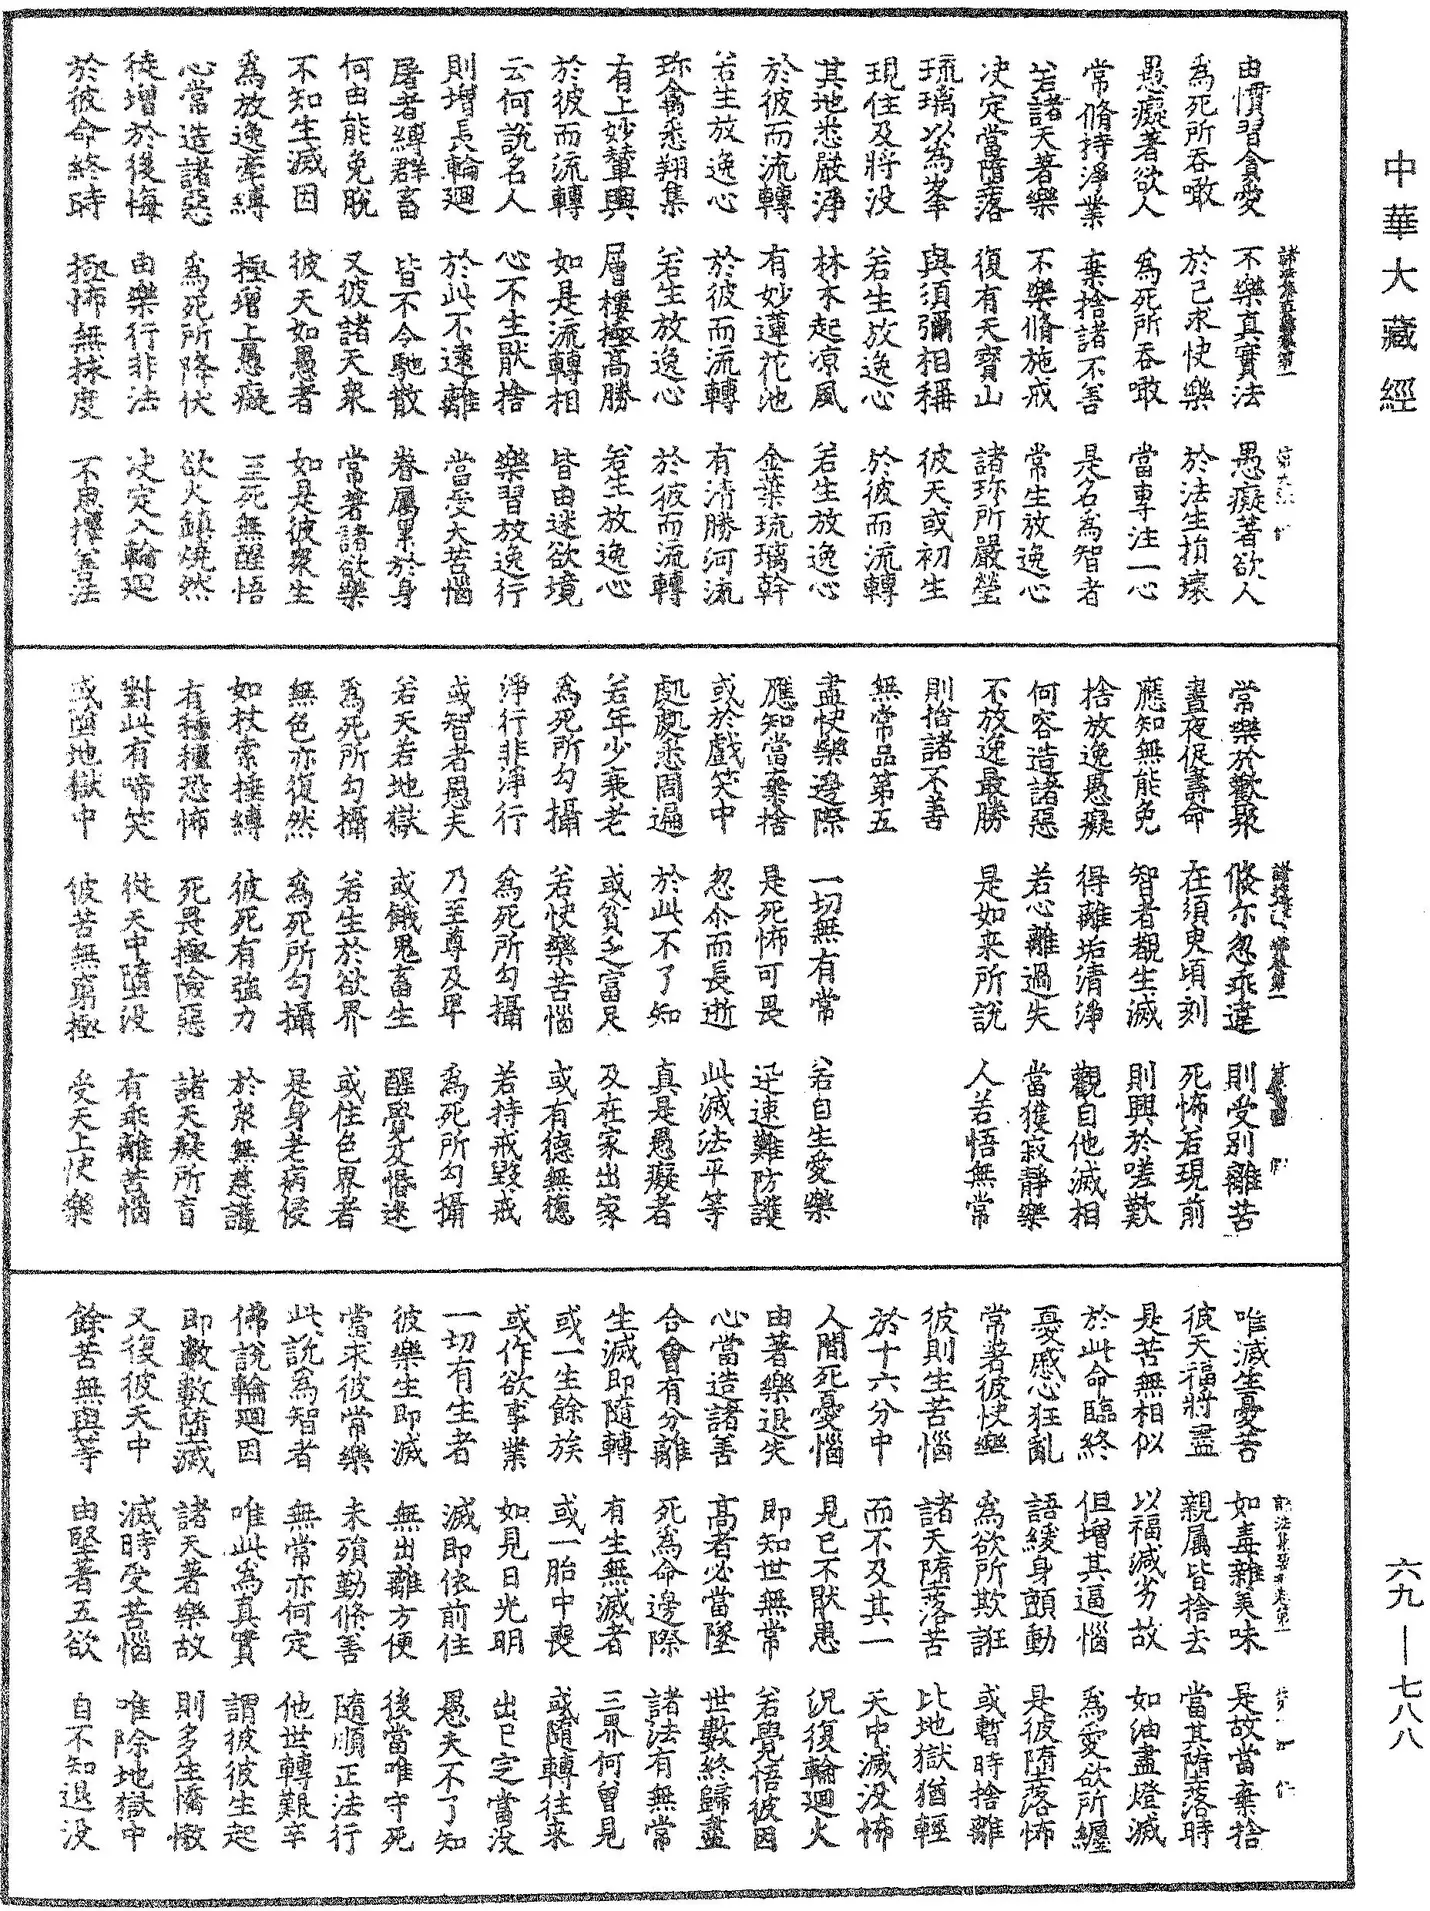 中華大藏經
由慣習貪愛 不樂真實法 愚癡著欲人
為死所吞噉 於己求快樂 於法生損壞
愚癡著欲人 為死所吞噉 當專注一心
常脩持淨業 棄捨諸不善 是名為智者
若諸天著樂 不樂脩施戒 常生放逸心
决定當墮落 復有天寶山 諸珎所嚴瑩
琉璃以為峯 與須彌相稱 彼天或初生
現住及將没 若生放逸心 於彼而流轉
其地悉嚴淨 林木起凉風 若生放逸心
於彼而流轉 有妙蓮花池 金葉琉璃幹
若生放逸心 於彼而流轉 有清勝河流
珎禽悉翔集 若生放逸心 於彼而流轉
有上妙輦輿 層樓極高勝 若生放逸心
於彼而流轉 如是流轉相 皆由迷欲境
云何說名人 心不生猒捨 樂習放逸行
則增長輪廻 於此不遠離 當受大苦惱
屠者縛群畜 皆不令馳散 眷屬累於身
何由能免脫 又彼諸天衆 常著諸欲樂
不知生滅因 彼天如愚者 如是彼衆生
為放逸牽縛 極增上愚癡 三死無醒悟
心常造諸惡 為死所降伏 欲火鎮燒然
徒增於後悔 由樂行非法 决定入輪廻
於彼命終時 極怖無救度 不思擇善法
常樂於歡聚 倏尒忽乖違 則受別離苦
晝夜促壽命 在須臾頃刻 死怖若現前
應知無能免 智者觀生滅 則興於嗟歎
捨放逸愚癡 得離垢清淨 觀自他滅相
何容造諸惡 若心離過失 當獲寂靜樂
不放逸最勝 是如來所說 人若悟無常
則捨諸不善
無常品第五
盡快樂邊際 一切無有常 若自生愛樂
應知當棄捨 是死怖可畏 迅速難防護
或於戲笑中 忽尒而長逝 此滅法平等
處處悉周遍 於此不了知 真是愚癡者
若年少衰老 或貧乏富足 及在家出家
為死所勾攝 若快樂苦惱 或有德無德
淨行非淨行 為死所勾攝 若持戒毀戒
或智者愚夫 乃至尊及卑 為死所勾攝
若天若地獄 或餓鬼畜生 醒覺及惛迷
為死所勾攝 若生於欲界 或住色界者
無色亦復然 為死所勾攝 是身老病侵
如杖索捶縛 彼死有強力 於衆無慈護
有種種恐怖 死畏極險惡 諸天癡所盲
對此有啼笑 從天中墮没 有乖離苦惱
或墮地獄中 彼苦無窮極 受天上快樂
唯滅生憂苦 如毒雜美味 是故當棄捨
彼天福將盡 親屬皆捨去 當其墮落時
是苦無相似 以福減劣故 如油盡燈滅
於此命臨終 但增其逼惱 為愛欲所纏
憂慼心狂亂 語緩身顫動 是彼墮落怖
常著彼快樂 為欲所欺誑 或暫時捨離
彼則生苦惱 諸天墮落苦 比地獄猶輕
於十六分中 而不及其一 天中滅没怖
人間死憂惱 見已不猒患 况復輪廻火
由著樂退失 即知世無常 若覺悟彼因
心當造諸善 高者必當墜 世數終歸盡
合會有分離 死為命邊際 諸法有無常
生滅即隨轉 有生無滅者 三界何曾見
或一生餘族 或一胎中喪 或隨轉往來
或作欲事業 如見日光明 出已定當没
一切有生者 滅即依前住 愚夫不了知
彼樂生即滅 無出離方便 後當唯守死
當求彼常樂 未殞勤脩善 隨順正法行
此說為智者 無常亦何定 他世轉艱辛
佛說輪廻因 唯此為真實 謂彼彼生起
即數數墮滅 諸天著樂故 則多生憍慠
又復彼天中 滅時受苦惱 唯除地獄中
餘苦無與等 由堅著五欲 自不知退没
六九—七八八